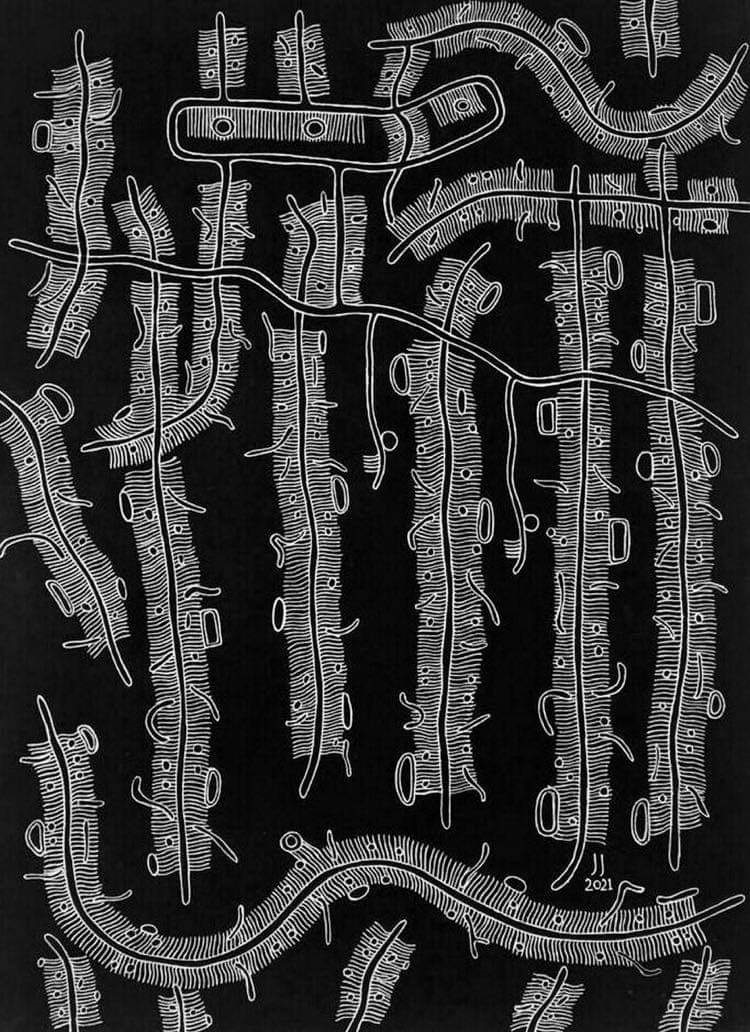 JJ
2021